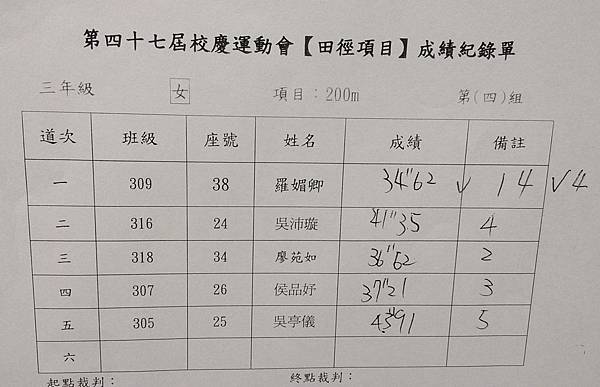 第四十七屆校慶運動會【田徑項目】成績紀錄單
三年級 女 項目：200m 第(四)組
道次 班級 座號 姓名 成績 備註
一 309 38 羅媚卿 34"62 √ 14 √4
二 316 24 吳沛璇 41"35 4
三 318 34 廖苑如 36"62 2
四 307 26 侯品妤 37"21 3
五 305 25 吳亭儀 43"91 5
六
起點裁判： 終點裁判：